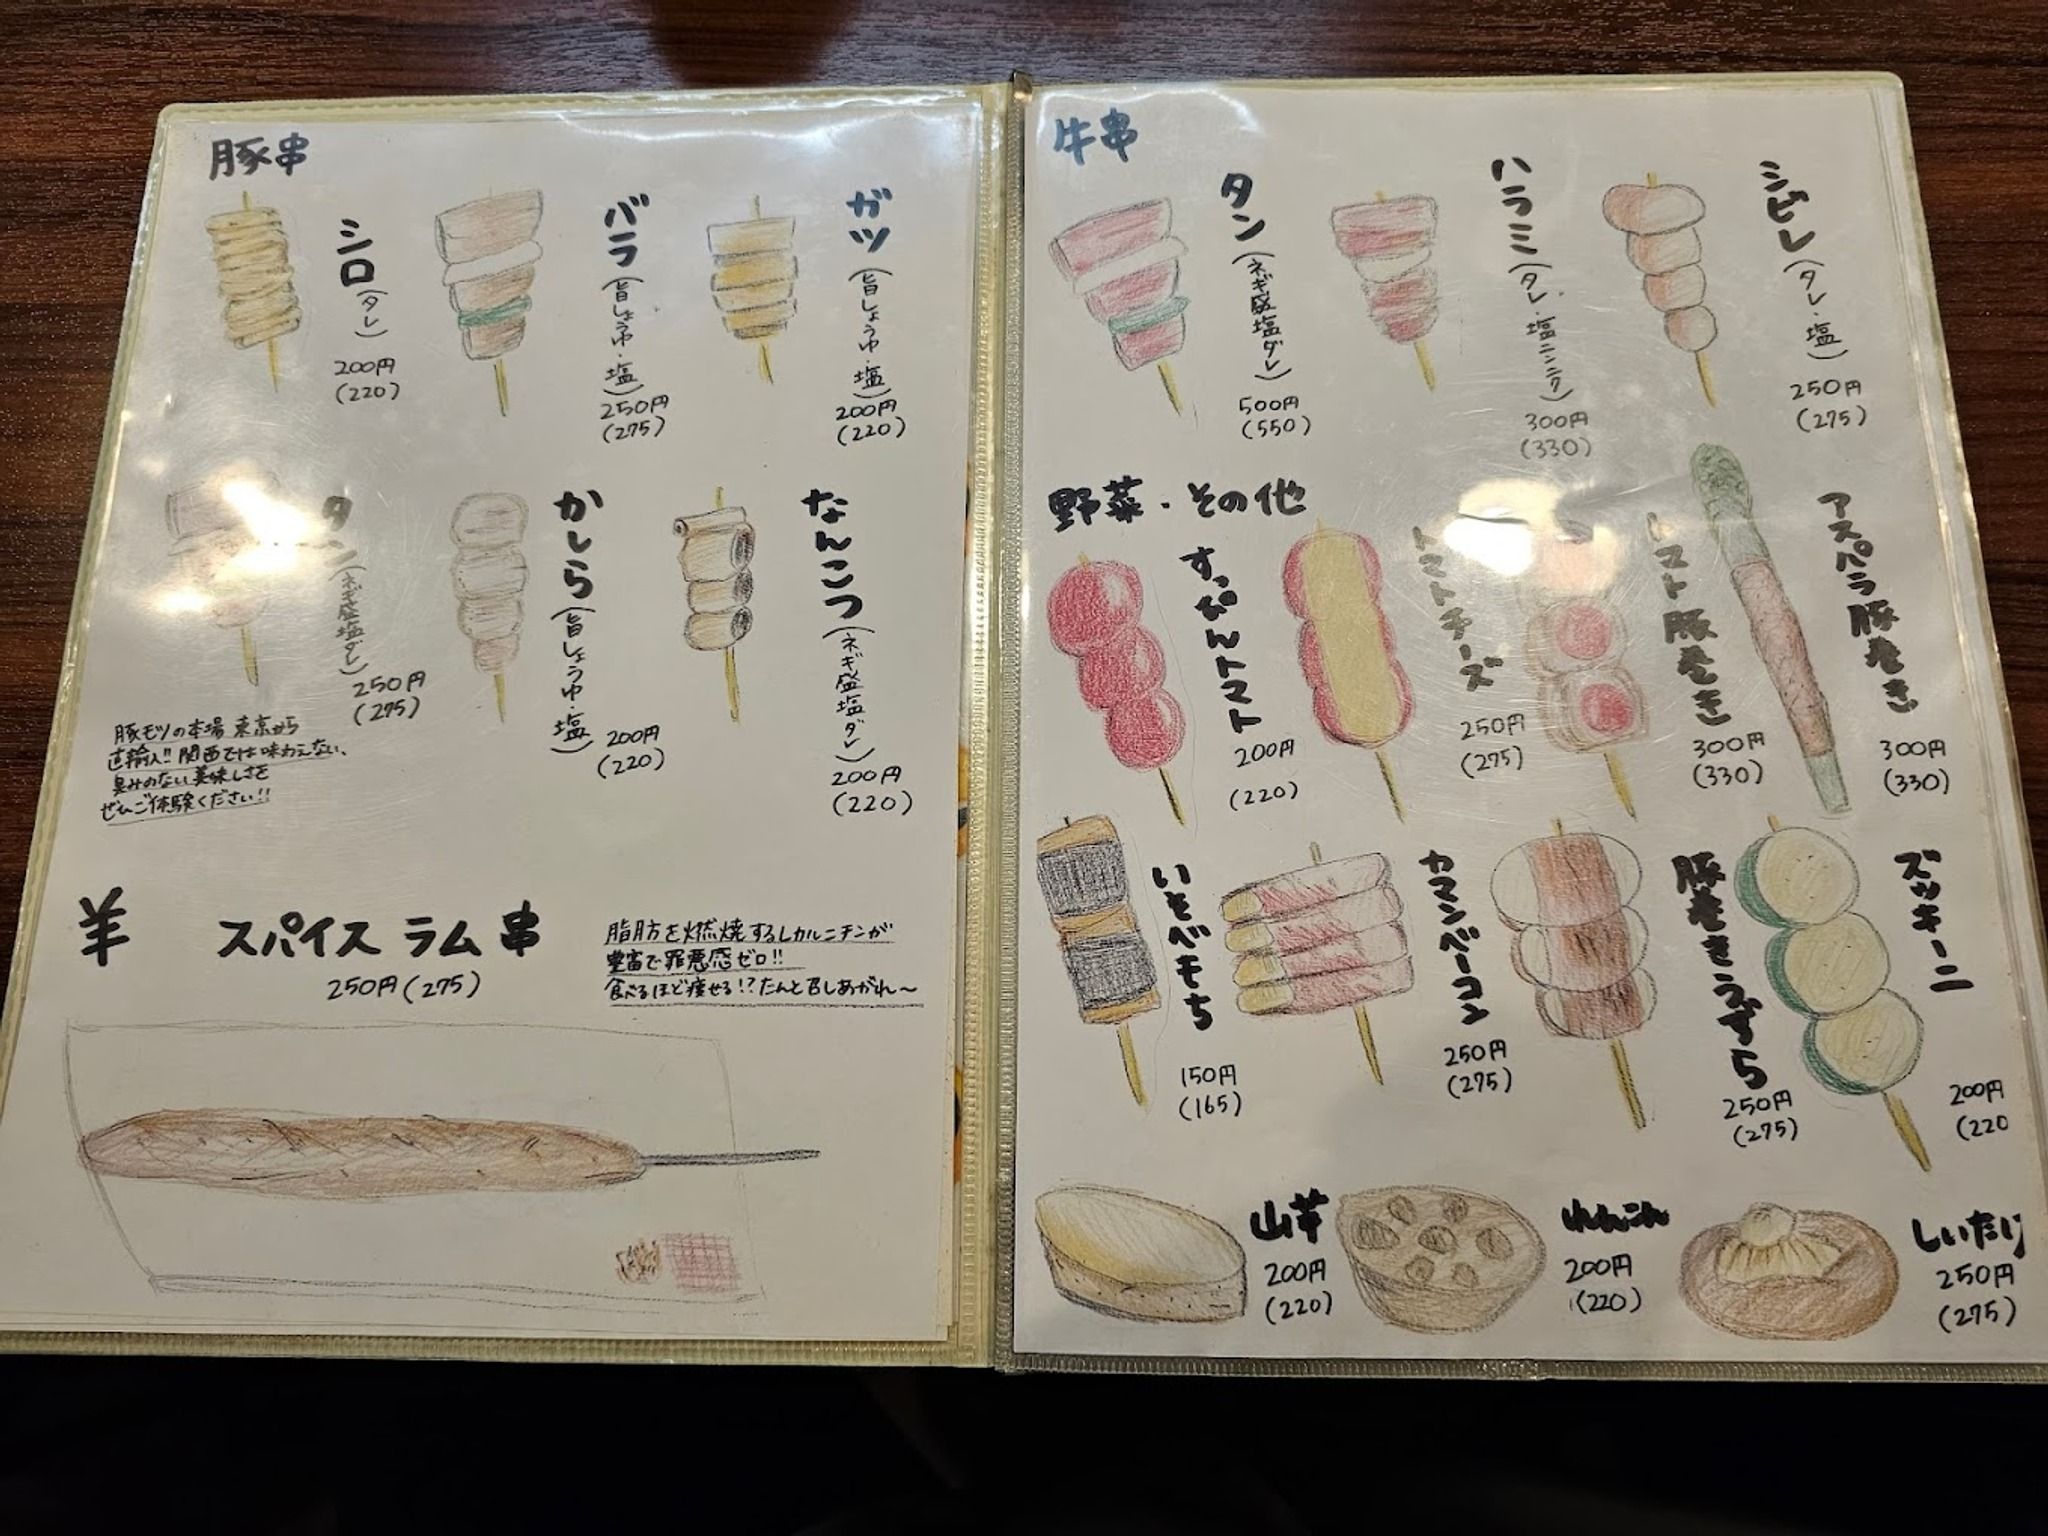 豚串
シロ(タレ)
200円
(220)
バラ(旨しょうゆ・塩)
250円
(275)
ガツ(旨しょうゆ・塩)
200円
(220)
タン(ネギ盛塩ダレ)
250円
(275)
かしら(旨しょうゆ・塩)
200円
(220)
なんこつ(ネギ盛塩ダレ)
200円
(220)
豚モツの本場 東京から
直輸入!! 関西では味わえない、
臭みのない美味しさを
ぜひご体験ください!!
羊
スパイス ラム串
250円(275)
脂肪を燃焼するLカルニチンが
豊富で罪悪感ゼロ!!
食べるほど痩せる!?たんと召しあがれ〜
牛串
タン(ネギ盛塩ダレ)
500円
(550)
ハラミ(タレ・塩ニンニク)
300円
(330)
シビレ(タレ・塩)
250円
(275)
野菜・その他
すっぴんトマト
200円
(220)
トマトチーズ
250円
(275)
トマト豚巻き
300円
(330)
アスパラ豚巻き
300円
(330)
いそべもち
150円
(165)
カマンベーコン
250円
(275)
豚巻きうずら
250円
(275)
ズッキーニ
200円
(220
山芋
200円
(220)
れんこん
200円
(220)
しいたけ
250円
(275)